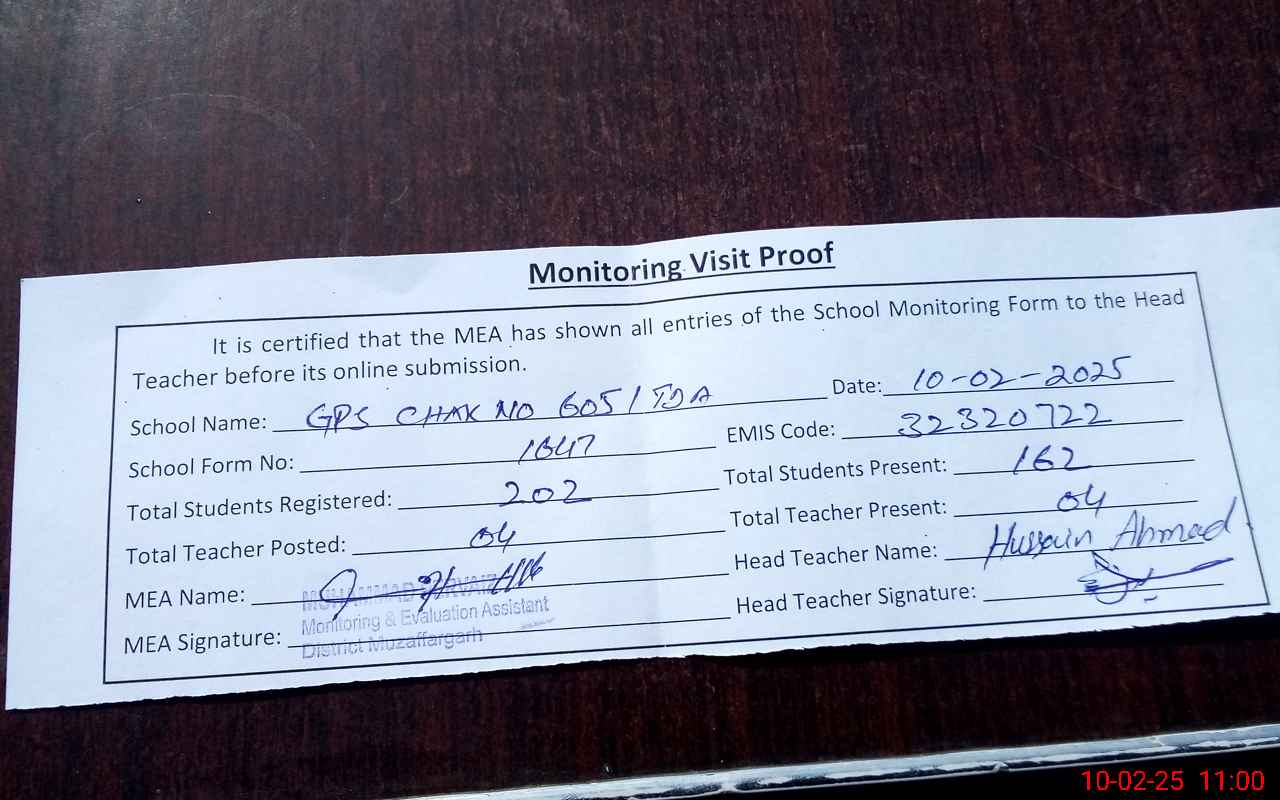 Monitoring Visit Proof
It is certified that the MEA has shown all entries of the School Monitoring Form to the Head
Teacher before its online submission.
School Name: GPS CHAK NO 605/TDA Date: 10-02-2025
School Form No: 1647 EMIS Code: 32320722
Total Students Registered: 202 Total Students Present: 162
Total Teacher Posted: 04 Total Teacher Present: 04
MEA Name: MUHAMMAD Head Teacher Name: Hussain Ahmad
Monitoring & Evaluation Assistant
MEA Signature: District Muzaffargarh Head Teacher Signature:
10-02-25 11:00